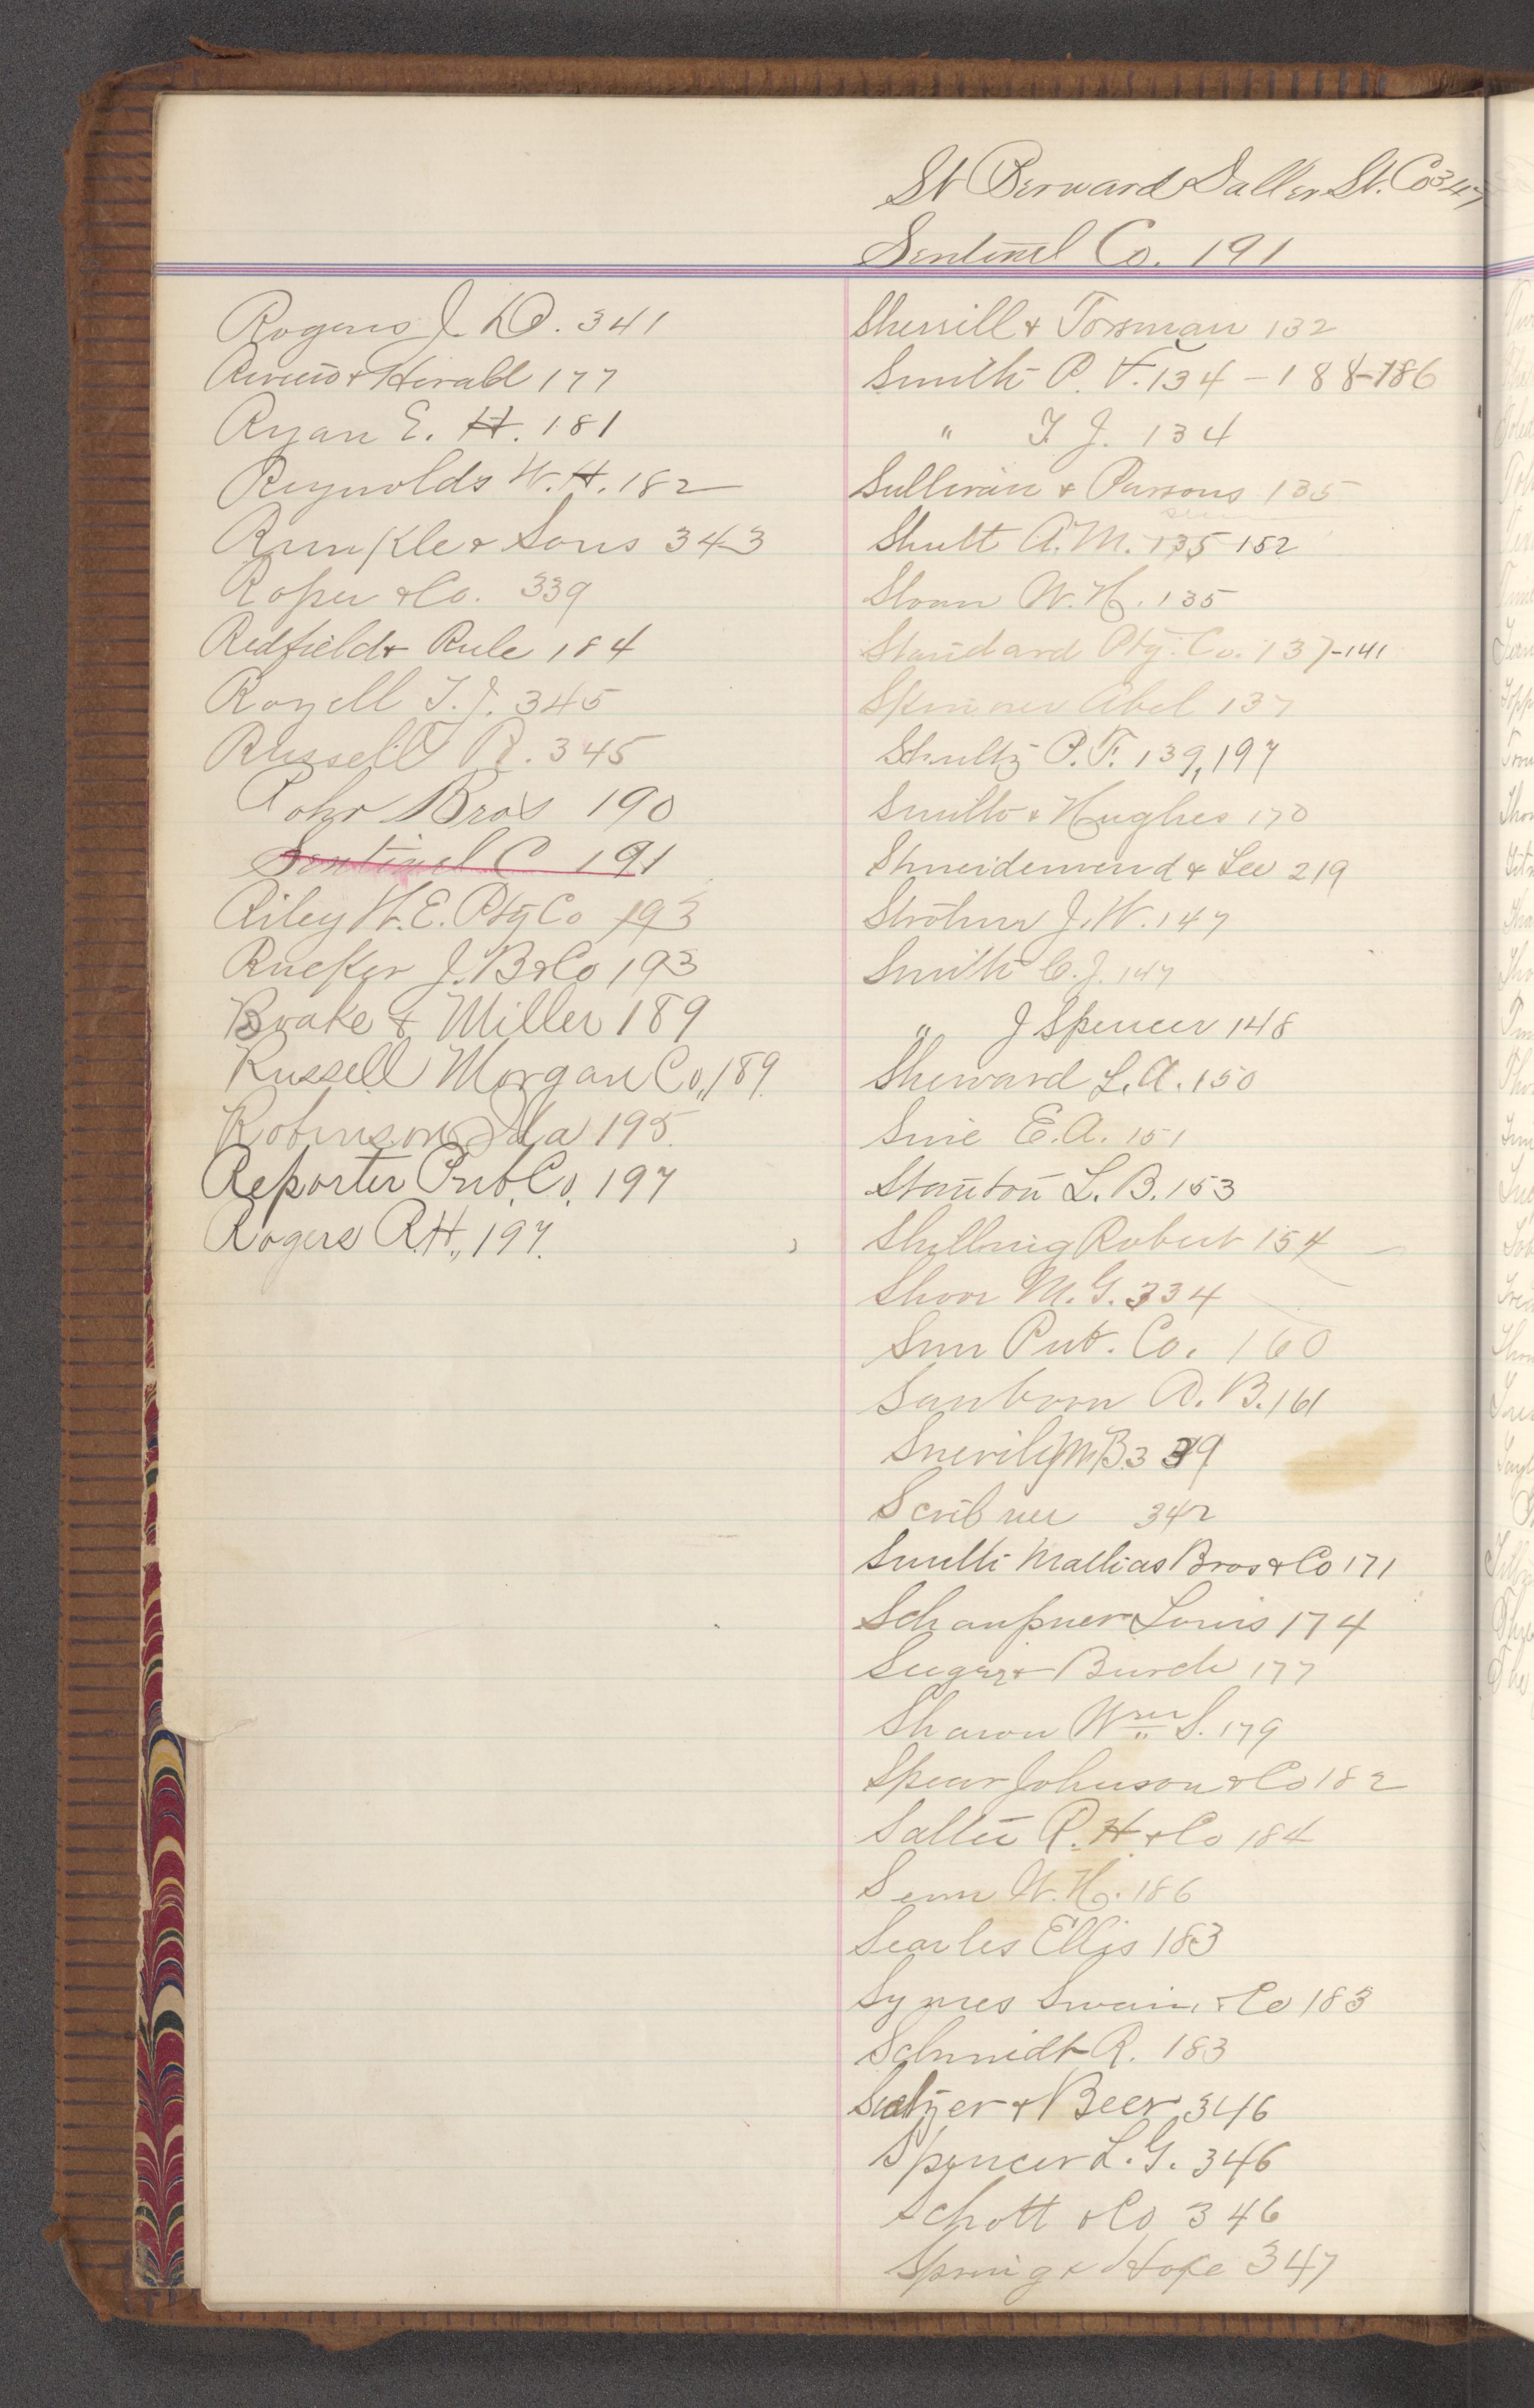 St Bernard Daller St. Co 347
Sentinel Co. 191
Rogers J. D. 341
Review & Herald 177
Ryan E. H. 181
Reynolds W. H. 182
Runkle & Sons 343
Roper & Co. 339
Redfield & Rule 184
Rozell T. J. 345
Russell R. 345
Rohr Bros 190
Sentinel C 191
Riley W. E. Ptg Co 193
Rucker J. B & Co 193
Roake & Miller 189
Russell Morgan Co., 189.
Robinson Ida 195.
Reporter Pub. Co. 197
Rogers R. H., 197.
Sherrill & Torsman 132
Smith P. F. 134 - 188-186
" T. J. 134
Sullivan & Parsons 135
Shult A. M. 135 152
Sloan W. H. 135
Standard Ptg. Co. 137-141
Spinner Abel 137
Shultz P. F. 139, 197
Smith & Hughes 170
Shneidewend & Lee 219
Strohm J. W. 147
Smith C. J. 147
" J Spencer 148
Sherward L. A. 150
Sine E. A. 151
Stanton L. B. 153
Shilling Robert 154
Shoor M. G. 334
Sun Pub. Co. 160
Sanborn A. B. 161
Snevily M B. 339
Scribner 342
Smith Mathias Bros & Co 171
Schaupner Louis 174
& Burch 177
Sharon Wm S. 179
Spear Johnson & Co 182
Salter R. H. & Co 184
Senn W. H. 186
Searles Ellis 183
Symes Swain & Co 183
Schmidt R. 183
& Beer 346
Spencer L. G. 346
Schott & Co 346
Spring & Hope 347